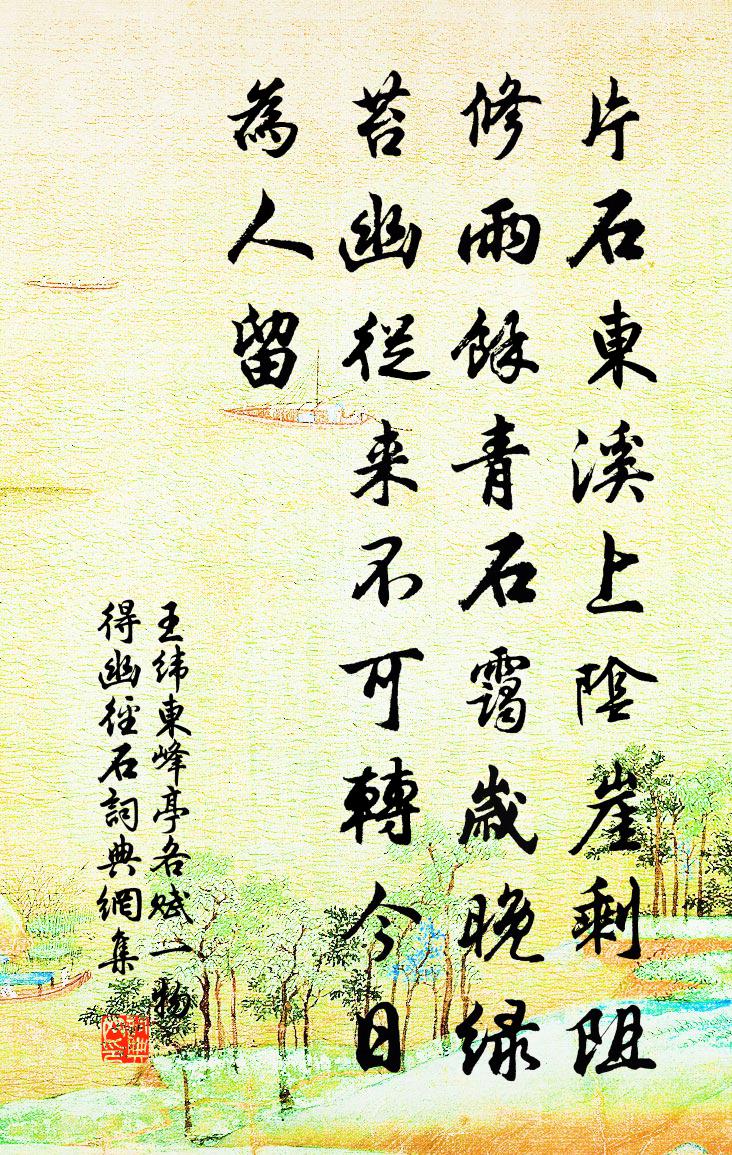 片石東溪上陰崖剩阻
修雨餘青石靄歲晚綠
苔幽從来不可轉今日
為人留
王緯東峰亭各賦一物
得幽徑石詞典網集